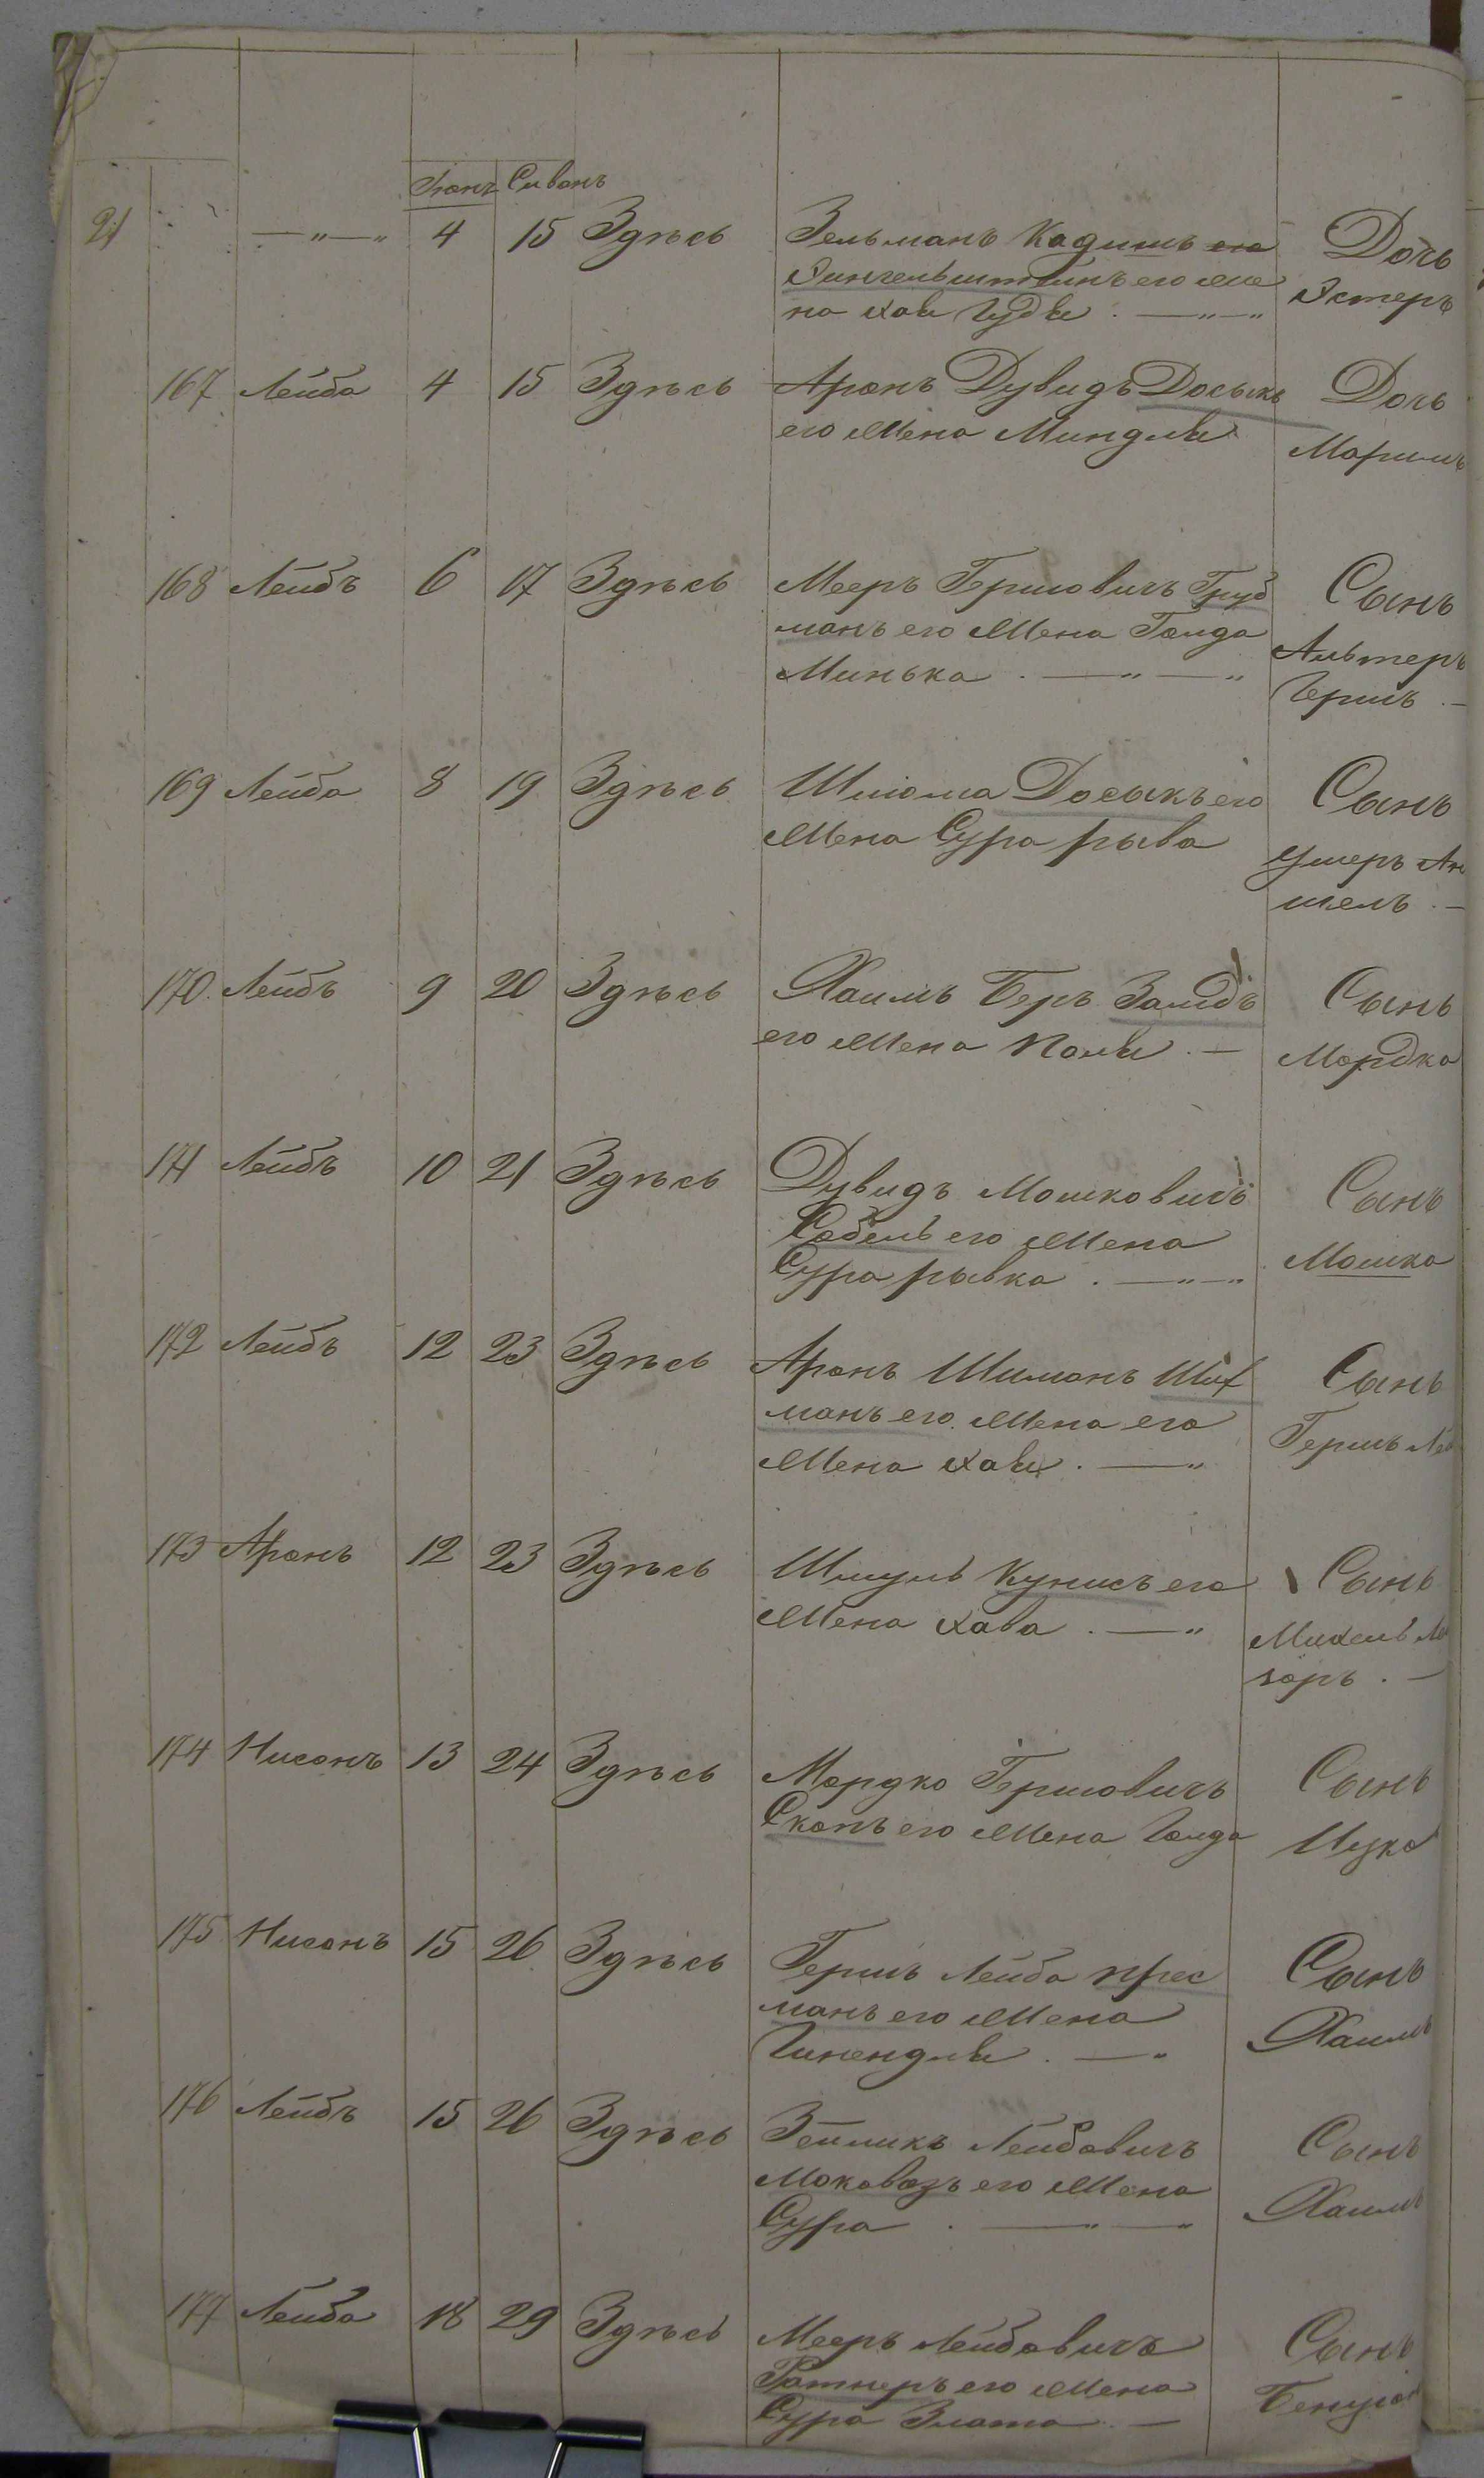 Іюнъ Сиванъ
21 —"—" 4 15 Здѣсь Зельманъ Кадишъ его Дочь
его Же Эстеръ
на Хая Гудя . —"—"
167 Лейба 4 15 Здѣсь Аронъ Дувидъ Досыкъ Дочь
его Жена Миндля
168 Лейбъ 6 17 Здѣсь Мееръ Гершовичъ Груд Сынъ
манъ его Жена Голда Альтеръ
Минька . —"—" Гершъ . —
169 Лейба 8 19 Здѣсь Шлюма Досыкъ его Сынъ
Жена Сура рыва Умеръ Ан
шель . —
170. Лейбъ 9 20 Здѣсь Хаимъ Беръ Сынъ
его Жена . — Мордка
171 Лейбъ 10 21 Здѣсь Дувидъ Мошковичъ Сынъ
Собель его Жена Мошка
Сура рывка . —"—"
172 Лейбъ 12 23 Здѣсь Аронъ Шимонъ Шиф Сынъ
манъ его Жена его Гершъ Ле
Жена Хая . —"
173 Аронъ 12 23 Здѣсь Шмуль Кунисъ его Сынъ
Жена Хава . —" Михель Ле
зоръ . —
174 Нисонъ 13 24 Здѣсь Мордко Гершовичъ Сынъ
Скопъ его Жена Голда Ицко
175 Нисонъ 15 26 Здѣсь Гершъ Лейба прес Сынъ
манъ его Жена Хаимъ
Гинендля . —"
176 Лейбъ 15 26 Здѣсь Зейликъ Лейбовичъ Сынъ
Моковозъ его Жена Хаимъ
Сура . —"—"
177 Лейба 18 29 Здѣсь Мееръ Лейбовичъ Сынъ
Ратнеръ его Жена
Сура Злата . —